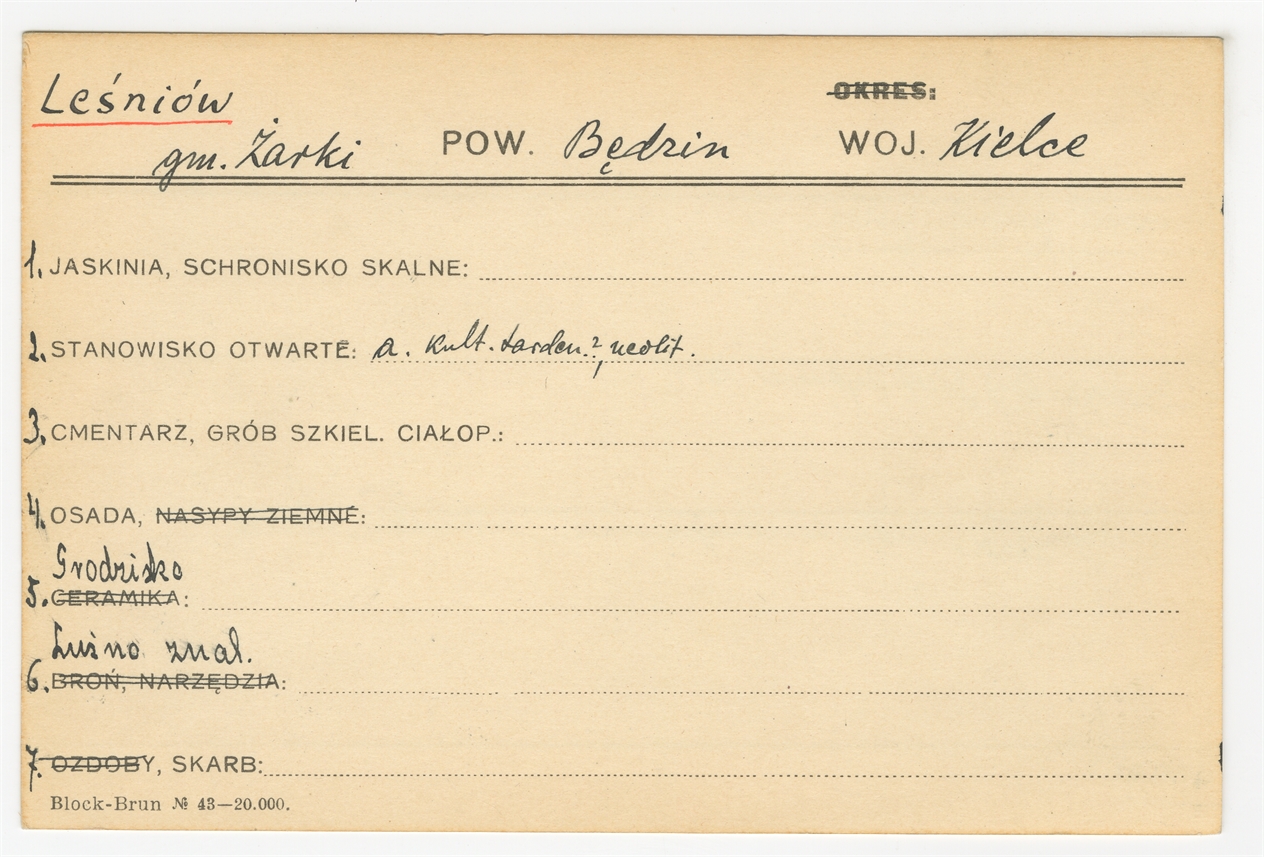 Leśniów
OKRES:
gm. Żarki POW. Będzin WOJ. Kielce
1. JASKINIA, SCHRONISKO SKALNE:
2. STANOWISKO OTWARTE: a. kult. tarden.?, neolit.
3. CMENTARZ, GRÓB SZKIEL. CIAŁOP.:
4. OSADA, NASYPY ZIEMNE:
Grodzisko
5. CERAMIKA:
Luźno znal.
6. BROŃ, NARZĘDZIA:
7. OZDOBY, SKARB:
Block-Brun № 43—20.000.